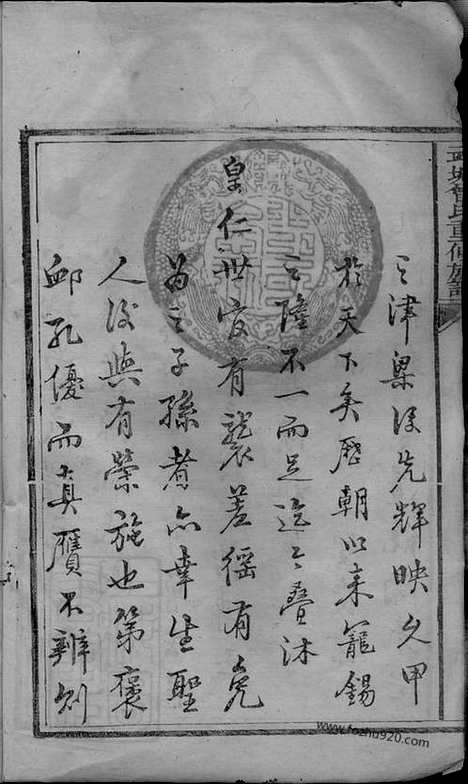 之津梁後先輝映久甲
於天下矣歷朝以來寵錫
之隆不一而足迄今疊沐
皇仁世官有襲差徭有免
為之子孫者亦幸生聖
人後與有榮施也第褒
卹孔優而真贋不辨則
武城曾氏重修族譜
www.fozhu920.com